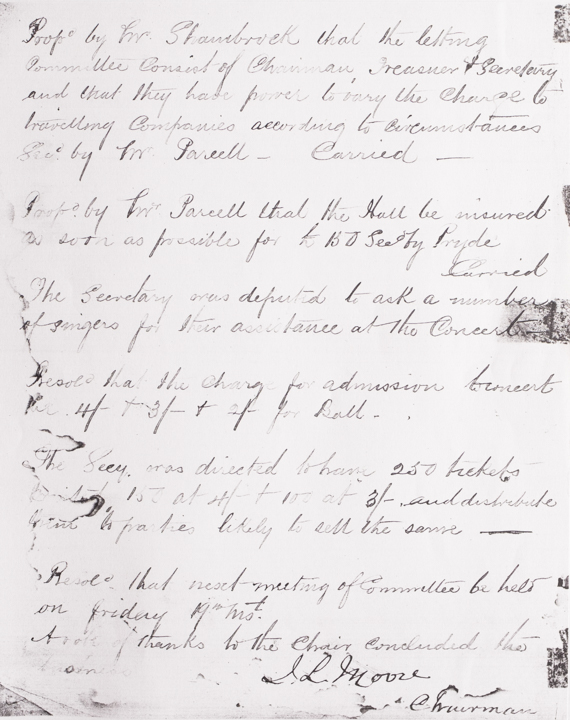 Propd by Mr. Shambrock that the letting
Committee Consist of Chairman, Treasuer & Secretary,
and that they have power to vary the Charge to
travelling Companies according to Circumstances
Secd by Mr Parcell - Carried —
Propd. by Mr. Parcell that the Hall be insured
as soon as possible for £150 Secd by Pryde
Carried
The Secretary was deputed to ask a number
of singers for their assistance at the Concert
Resold that the Charge for admission to concert
be 4/- & 3/- & 2/- for Ball - .
The Secy. was directed to have 250 tickets
printed 150 at 4/- & 100 at 3/- and distribute
them to parties likely to sell the same —
Resold that next meeting of Committee be held
on friday 19th Inst.
A vote of thanks to the Chair concluded the
business
J. L. Moore
Chairman